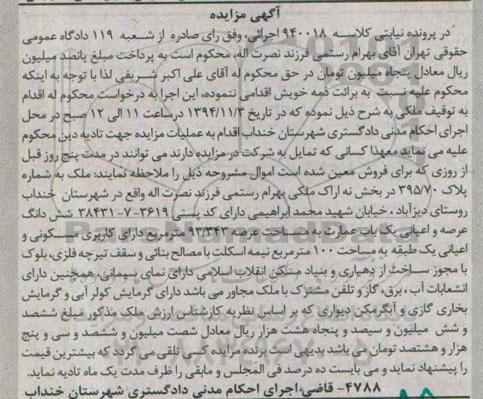 آگهی مزایده
در پرونده نیابتی کلاسه ۹۴۰۰۱۸ اجرائی، وفق رای صادره از شعبه ۱۱۹ دادگاه عمومی
حقوقی تهران آقای بهرام رستمی فرزند نصرت اله، محکوم است به پرداخت مبلغ پانصد میلیون
ریال معادل پنجاه میلیون تومان در حق محکوم له آقای علی اکبر شریفی لذا با توجه به اینکه
محکوم علیه نسبت به برائت ذمه خویش اقدامی ننموده، این اجرا به درخواست محکوم له اقدام
به توقیف ملکی به شرح ذیل نموده که در تاریخ ۱۳۹۴/۱۱/۳ درساعت ۱۱ الی ۱۲ صبح در محل
اجرای احکام مدنی دادگستری شهرستان خنداب اقدام به عملیات مزایده جهت تادیه دین محکوم
علیه می نماید معهذا کسانی که تمایل به شرکت در مزایده دارند می توانند در مدت پنج روز قبل
از روزی که برای فروش معین شده است اموال مشروحه ذیل را ملاحظه نمایند: ملک به شماره
پلاک ۳۹۵/۷۰ در بخش نه اراک ملکی بهرام رستمی فرزند نصرت اله واقع در شهرستان خنداب
روستای دیزآباد، خیابان شهید محمد ابراهیمی دارای کد پستی ۳۶۱۹-۷-۳۸۴۳۱ شش دانگ
عرصه و اعیانی یک باب عمارت به مساحت عرصه ۹۳/۳۴۳ مترمربع دارای کاربری مسکونی و
اعیانی یک طبقه به مساحت ۱۰۰ مترمربع نیمه اسکلت با مصالح بنائی و سقف تیرچه فلزی، بلوک
با مجوز ساخت از دهیاری و بنیاد مسکن انقلاب اسلامی دارای نمای سیمانی، همچنین دارای
انشعابات آب، برق، گاز و تلفن مشترک با ملک مجاور می باشد دارای گرمایش کولر آبی و گرمایش
بخاری گازی و آبگرمکن دیواری که بر اساس نظریه کارشناس ارزش ملک مذکور مبلغ ششصد
و شش میلیون و سیصد و پنجاه هشت هزار ریال معادل شصت میلیون و ششصد و سی و پنج
هزار و هشتصد تومان می باشد بدیهی است برنده مزایده کسی تلقی می گردد که بیشترین قیمت
را پیشنهاد نماید و می بایست ده درصد فی المجلس و مابقی را ظرف مدت یک ماه تادیه نماید.
۴۷۸۸- قاضی اجرای احکام مدنی دادگستری شهرستان خنداب